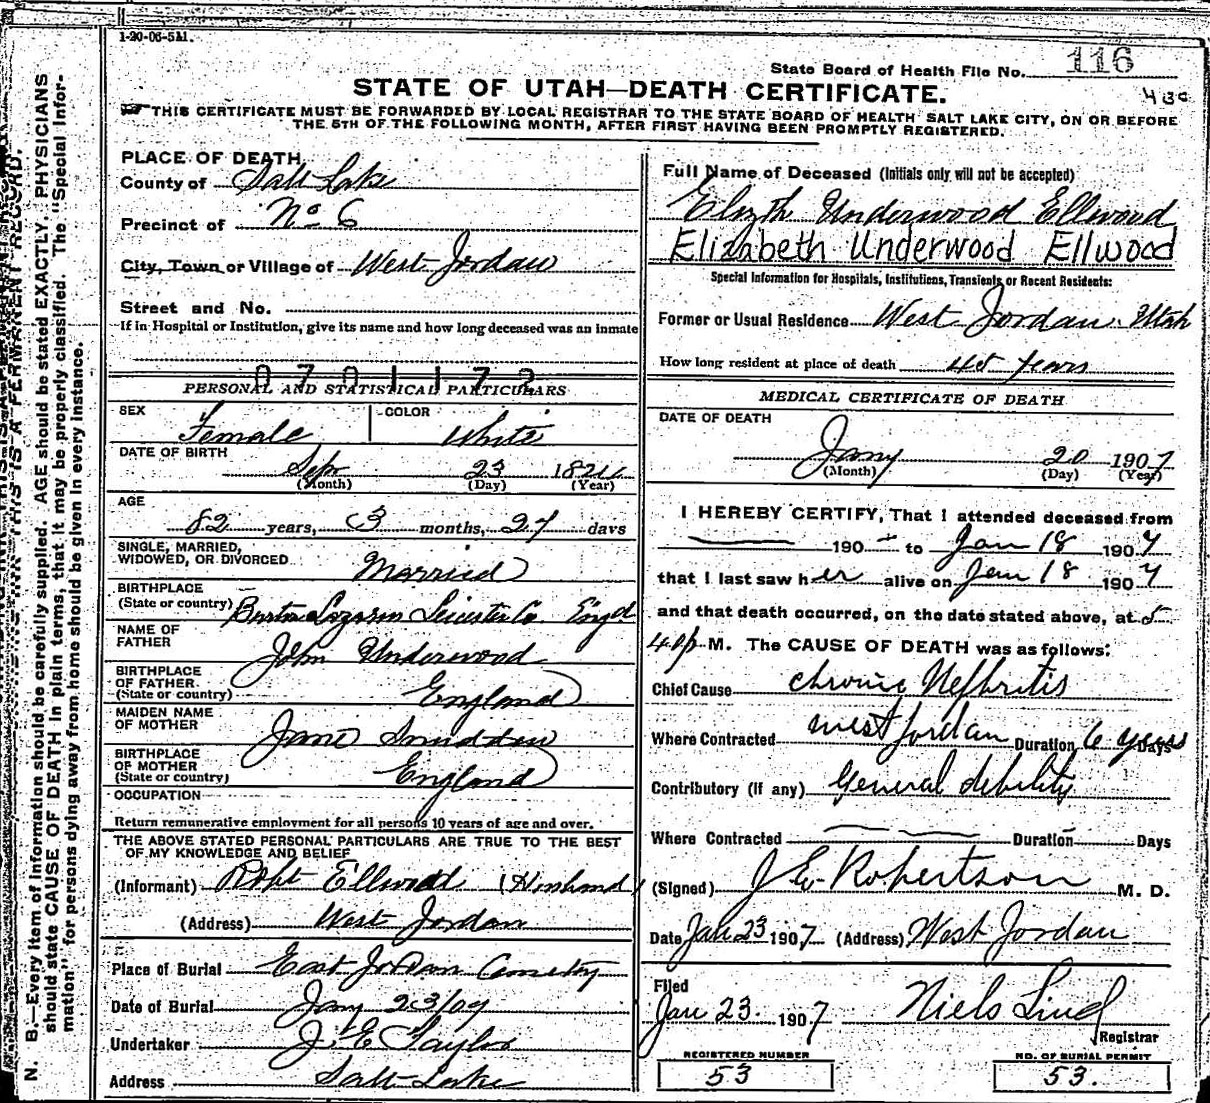 1-20-06-5M.
State Board of Health File No. 116
STATE OF UTAH—DEATH CERTIFICATE.
THIS CERTIFICATE MUST BE FORWARDED BY LOCAL REGISTRAR TO THE STATE BOARD OF HEALTH SALT LAKE CITY, ON OR BEFORE
THE 5TH OF THE FOLLOWING MONTH, AFTER FIRST HAVING BEEN PROMPTLY REGISTERED.
N. B.—Every item of information should be carefully supplied. AGE should be stated EXACTLY. PHYSICIANS
should state CAUSE OF DEATH in plain terms, that it may be properly classified. The "Special Infor-
mation" for persons dying away from home should be given in every instance.
THIS IS A PERMANENT RECORD.
PLACE OF DEATH
County of Salt Lake
Precinct of No 6
City, Town or Village of West Jordan
Street and No.
If in Hospital or Institution, give its name and how long deceased was an inmate
0701172
PERSONAL AND STATISTICAL PARTICULARS
SEX Female COLOR White
DATE OF BIRTH
Sep 23 1824
(Month) (Day) (Year)
AGE
82 years, 3 months, 27 days
SINGLE, MARRIED,
WIDOWED, OR DIVORCED Married
BIRTHPLACE
(State or country) Leicester Co Engd
NAME OF
FATHER John Underwood
BIRTHPLACE
OF FATHER
(State or country) England
MAIDEN NAME
OF MOTHER Jane
BIRTHPLACE
OF MOTHER
(State or country) England
OCCUPATION
Return remunerative employment for all persons 10 years of age and over.
THE ABOVE STATED PERSONAL PARTICULARS ARE TRUE TO THE BEST
OF MY KNOWLEDGE AND BELIEF
(Informant) Robt Ellwood (Husband)
(Address) West Jordan
Place of Burial East Jordan Cemetry
Date of Burial Jany 23/07
Undertaker J. E. Taylor
Address Salt Lake
Full Name of Deceased (Initials only will not be accepted)
Elizth Underwood Ellwood
Elizabeth Underwood Ellwood
Special Information for Hospitals, Institutions, Transients or Recent Residents:
Former or Usual Residence West Jordan Utah
How long resident at place of death 40 Years
MEDICAL CERTIFICATE OF DEATH
DATE OF DEATH
Jany 20 1907
(Month) (Day) (Year)
I HEREBY CERTIFY, That I attended deceased from
190 to Jan 18 1907
that I last saw her alive on Jan 18 1907
and that death occurred, on the date stated above, at 5
40 p M. The CAUSE OF DEATH was as follows:
Chief Cause chronic Nephritis
Where Contracted West Jordan Duration 6 years Days
Contributory (if any) General debility
Where Contracted Duration Days
(Signed) J. E. Robertson M. D.
Date Jan 23 1907 (Address) West Jordan
Filed
Jan 23. 1907 Niels Lind
Registrar
REGISTERED NUMBER
53
NO. OF BURIAL PERMIT
53.